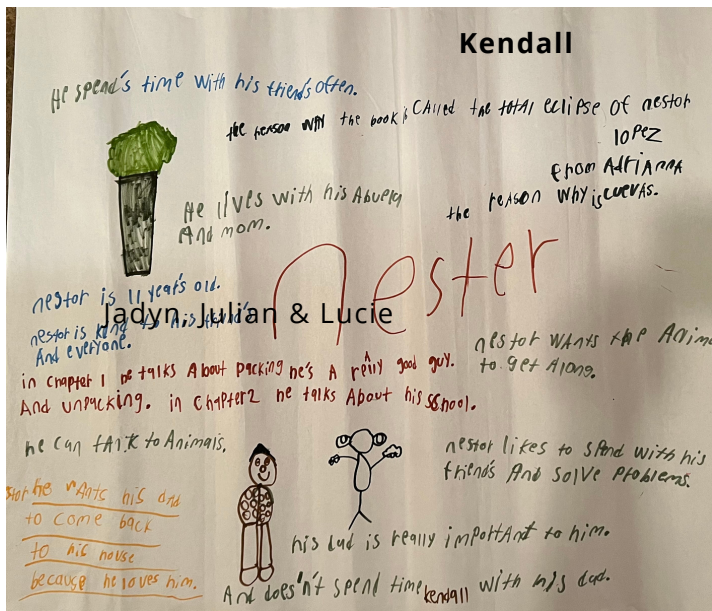 Kendall
He spend's time with his friends often.
the reason why the book is CAlled the total eclipse of nestor
lopez
from Adrianna
the reason why is cuevas.
He lives with his Abuela
And mom.
nester
nestor is 11 year's old.
Jadyn, Julian & Lucie
nestor is kind to his friend's
And everyone.
nestor wants the Anim
to get Along.
in chapter 1 he talks About packing he's A really good guy.
And unpacking. in Chapter2 he talks About his school.
he can talk to Animals.
nestor likes to spend with his
friends And solve problems.
he wants his dad
to come back
to his house
because he loves him.
his dad is really importAnt to him.
And does'n't spend time kendall with his dad.